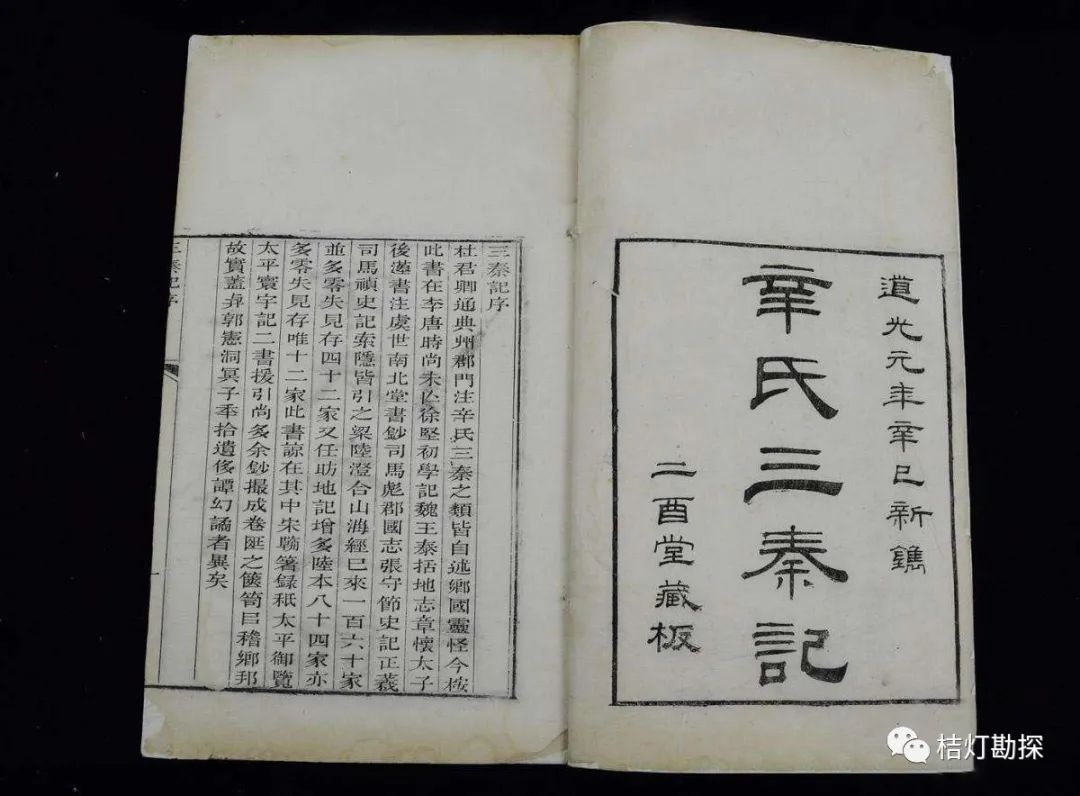 道光元年辛巳新鐫
辛氏三秦記
二酉堂藏板
三秦記序
杜君卿通典州郡門注辛氏三秦之類皆自述鄉國靈怪今桉
此書在李唐時尚未亾徐堅初學記魏王泰括地志章懷太子
後漢書注虞世南北堂書鈔司馬彪郡國志張守節史記正義
司馬禎史記索隱皆引之梁陸澄合山海經已來一百六十家
並多零失見存四十二家又任昉地記增多陸本八十四家亦
多零失見存唯十二家此書諒在其中宋駒箸録秖太平御覽
太平寰宇記二書援引尚多余鈔撮成卷匧之篋笥㠯稽鄉邦
故實蓋與郭憲洞冥子年拾遺侈譚幻譎者異矣
三秦記序
一
桔灯勘探